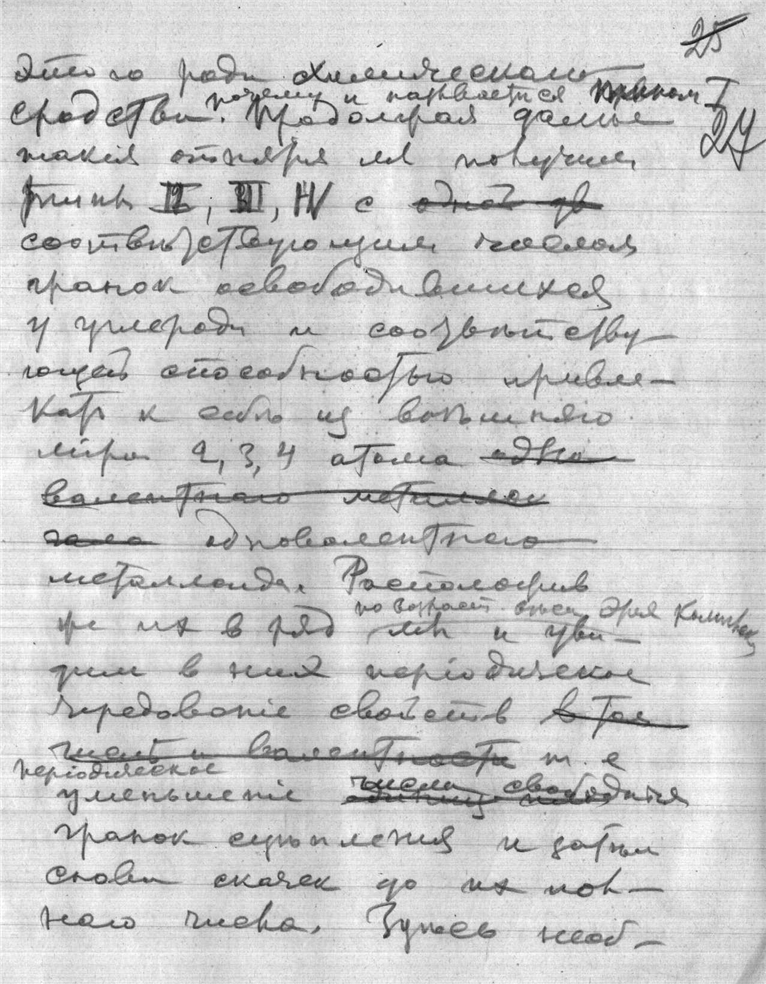 25
27
этого рода химическаго
почему и называется типом I
сродства. Продолжая далее
такія отнятія мы получим
типы II, III, IV с одной дв
соответствующим числом
гранок освободившихся
у углерода и соответству-
ющей способностью привле-
кать к себе из внешняго
міра 2, 3, 4 атома одно
валентнаго металлои
одновалентнаго
металлоида. Расположив
по возраст.
же их в ряд мы и уви-
дим в них періодическое
чередованіе свойств
числе и валентности т. е
періодическое
числа свободных
уменьшеніе
гранок сцепления и затем
снова скачек до их пол-
наго числа. Здесь необ-